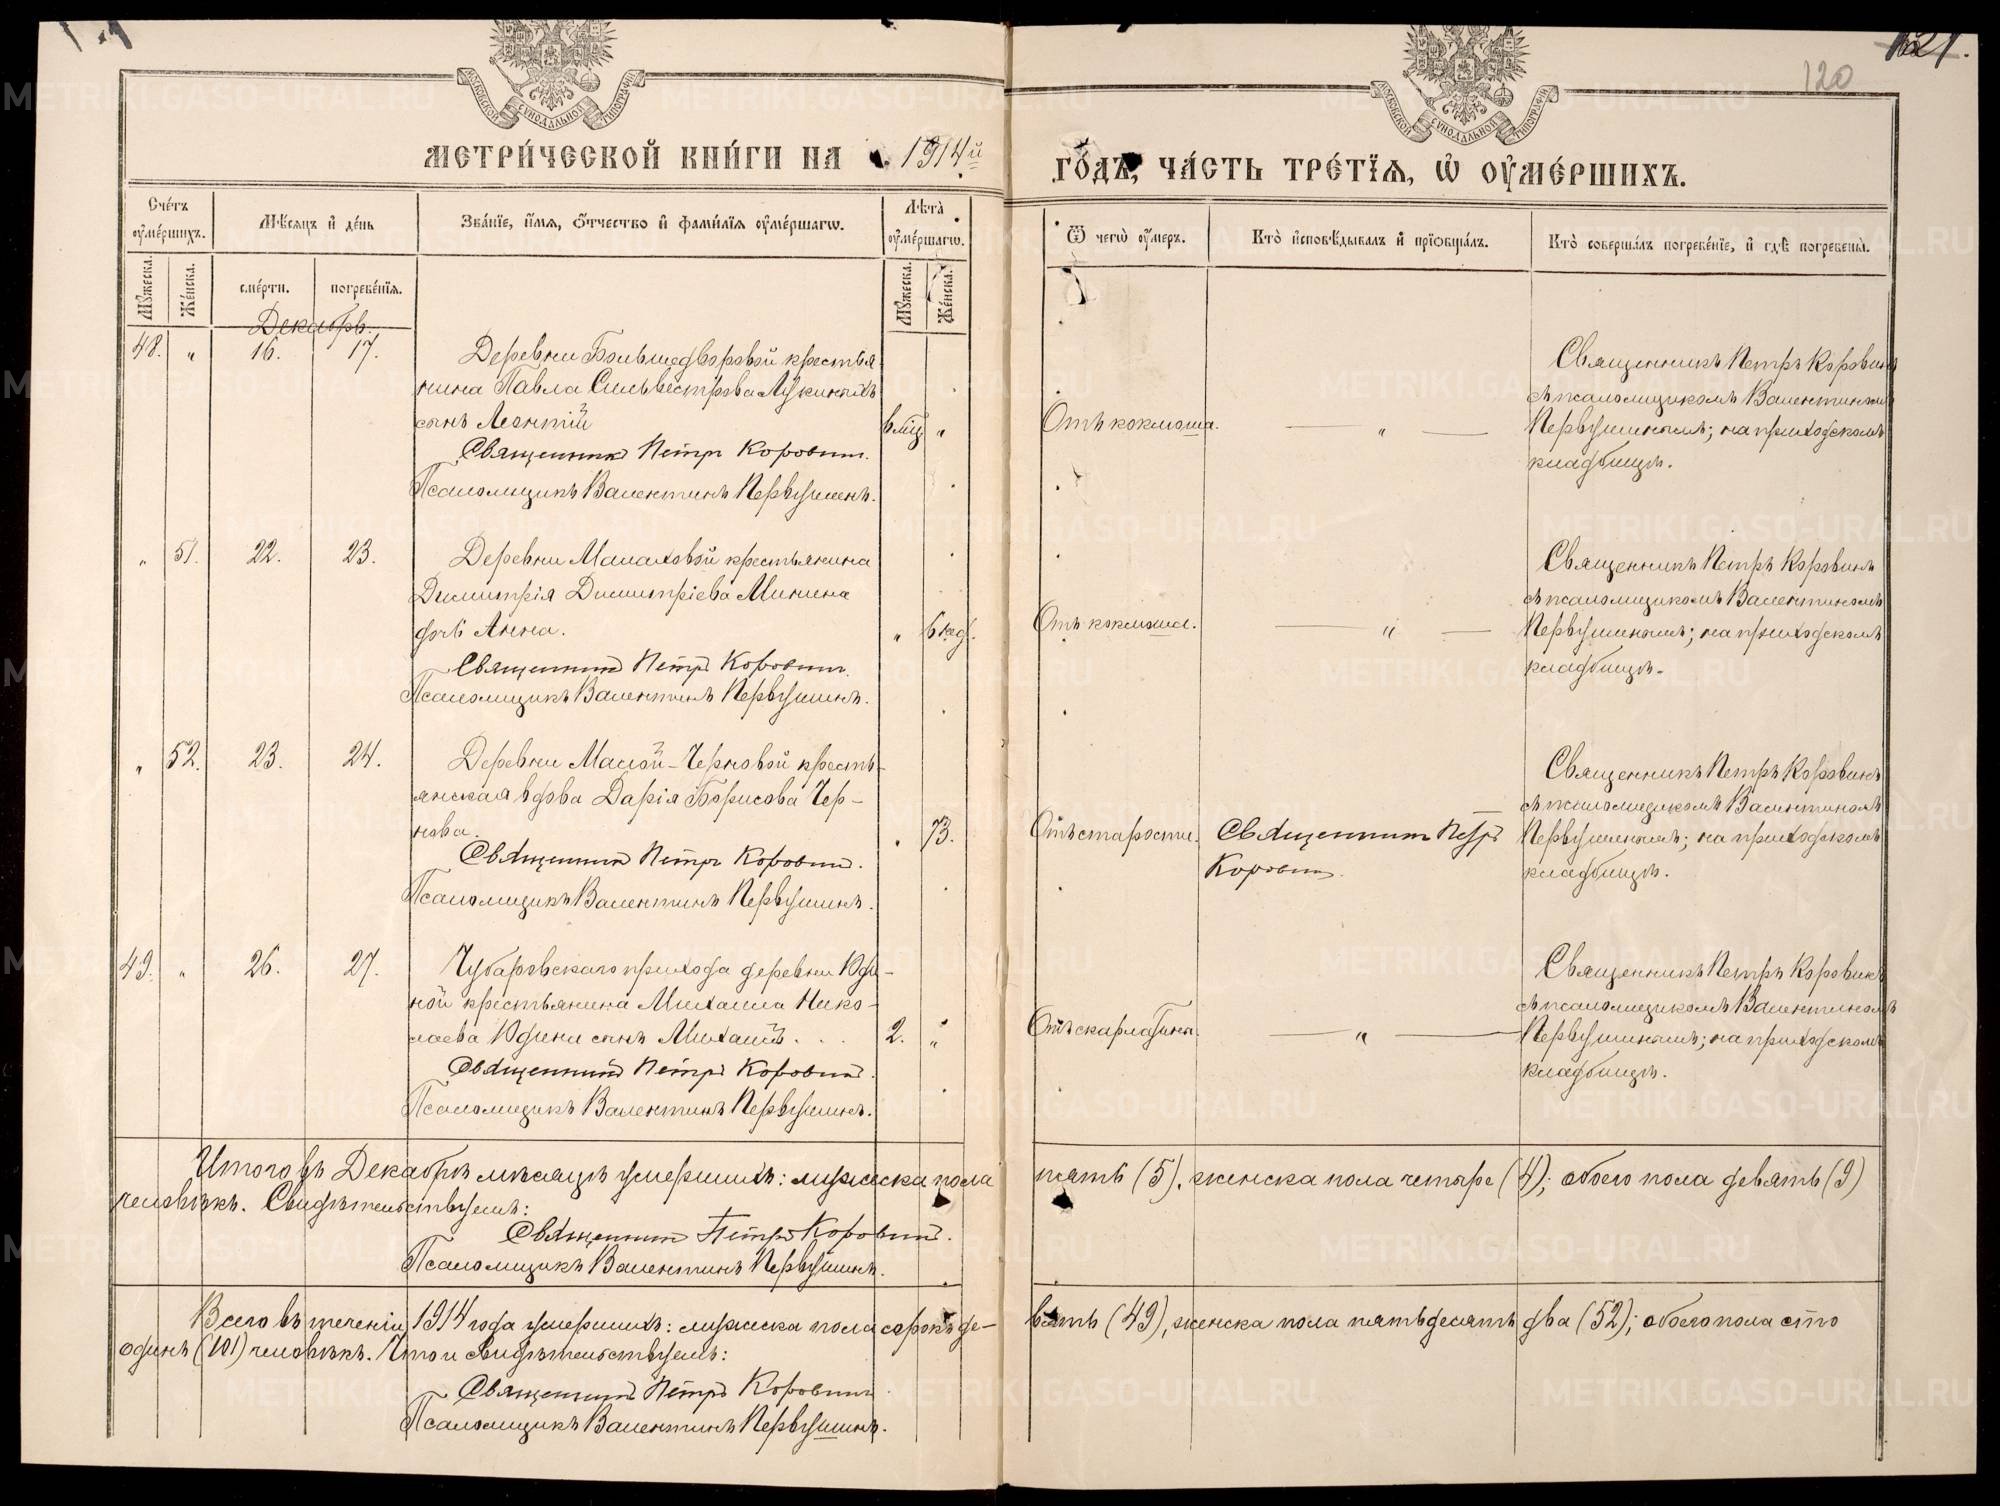 1021.
120
МОСКОВСКОЙ СѴНОДАЛЬНОЙ ТИПОГРАФІИ
МОСКОВСКОЙ СѴНОДАЛЬНОЙ ТИПОГРАФІИ
МЕТРИ́ЧЕСКОЙ КНИ́ГИ НА 1914й
ГО́ДЪ, ЧА́СТЬ ТРЕ́ТЇѦ, Ѡ҆ ОУ҆МЕ́РШИХЪ.
Сче́тъ оу҆ме́ршихъ.
Мѣ́сяцъ и҆ де́нь
Зва́нїе, и҆́мя, ѻ҆́тчество и҆ фами́лїя оу҆ме́ршагѡ.
Лѣ́та оу҆ме́ршагѡ.
Ѿ чегѡ̀ оу҆́меръ.
Кто̀ и҆сповѣ́дывалъ и҆ прїѡбща́лъ.
Кто̀ соверша́лъ погребе́нїе, и҆ гдѣ̀ погребены̀.
Мꙋ́жеска. Же́нска. сме́рти. погребе́нїя. Мꙋ́жеска. Же́нска.
Декабрь.
48. „ 16. 17. Деревни Большедворовой крестья-
нина Павла Сильвестрова Лукиныхъ
сынъ Леонтій 6 мѣц „
Священникъ Петръ Коровин.
Псаломщикъ Валентинъ Первушинъ.
Отъ коклюша. — „ —
Священникъ Петръ Коровинъ
съ псаломщикомъ Валентиномъ
Первушинымъ; на приходскомъ
кладбищѣ.
„ 51. 22. 23. Деревни Малаховой крестьянина
Димитрія Димитріева Минина
дочь Анна. „ 6 нед.
Священникъ Петръ Коровин.
Псаломщикъ Валентинъ Первушинъ.
Отъ коклюша. — „ —
Священникъ Петръ Коровинъ
съ псаломщикомъ Валентиномъ
Первушинымъ; на приходскомъ
кладбищѣ.
„ 52. 23. 24. Деревни Малой-Черновой кресть-
янская вдова Дарія Борисова Чер-
нова. „ 73.
Священникъ Петръ Коровин.
Псаломщикъ Валентинъ Первушинъ.
Отъ старости. Священник Петръ
Коровин.
Священникъ Петръ Коровинъ
съ псаломщикомъ Валентиномъ
Первушинымъ; на приходскомъ
кладбищѣ.
49. „ 26. 27. Чубаровского прихода деревни Юди-
ной крестьянина Михаила Нико-
лаева Юдина сынъ Михаилъ . . . 2. „
Священникъ Петръ Коровин.
Псаломщикъ Валентинъ Первушинъ.
Отъ скарлатины. — „ —
Священникъ Петръ Коровинъ
съ псаломщикомъ Валентиномъ
Первушинымъ; на приходскомъ
кладбищѣ.
Итого въ Декабрѣ мѣсяцѣ умершихъ: мужеска пола пять (5), женска пола четыре (4); обоего пола девять (9)
человѣкъ. Свидѣтельствуемъ:
Священник Петръ Коровин.
Псаломщикъ Валентинъ Первушинъ.
Всего въ теченіи 1914 года умершихъ: мужеска пола сорокъ де-
вять (49), женска пола пятьдесятъ два (52); обоего пола сто
одинъ (101) человѣкъ. Что и свидѣтельствуемъ:
Священникъ Петръ Коровин
Псаломщикъ Валентинъ Первушинъ.
METRIKI.GASO-URAL.RU